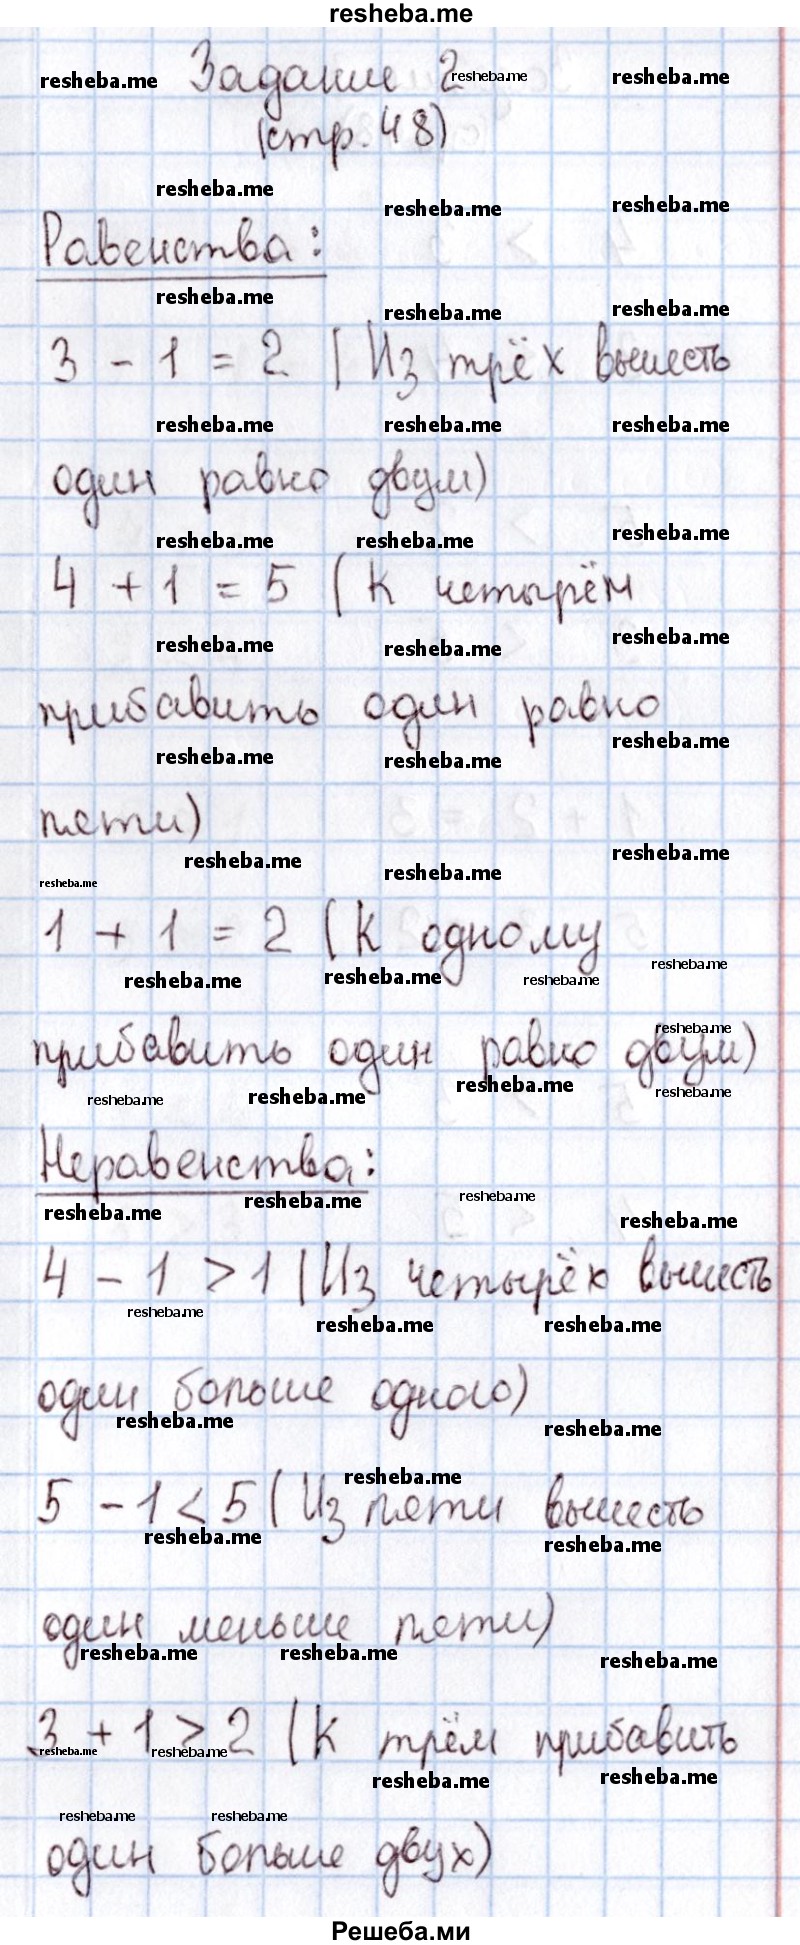 resheba.me
Задание 2
(стр. 48)
Равенства:
3 - 1 = 2 (Из трёх вычесть
один равно двум)
4 + 1 = 5 (К четырём
прибавить один равно
пяти)
1 + 1 = 2 (К одному
прибавить один равно двум)
Неравенства:
4 - 1 > 1 (Из четырёх вычесть
один больше одного)
5 - 1 < 5 (Из пяти вычесть
один меньше пяти)
3 + 1 > 2 (К трём прибавить
один больше двух)
Решеба.ми